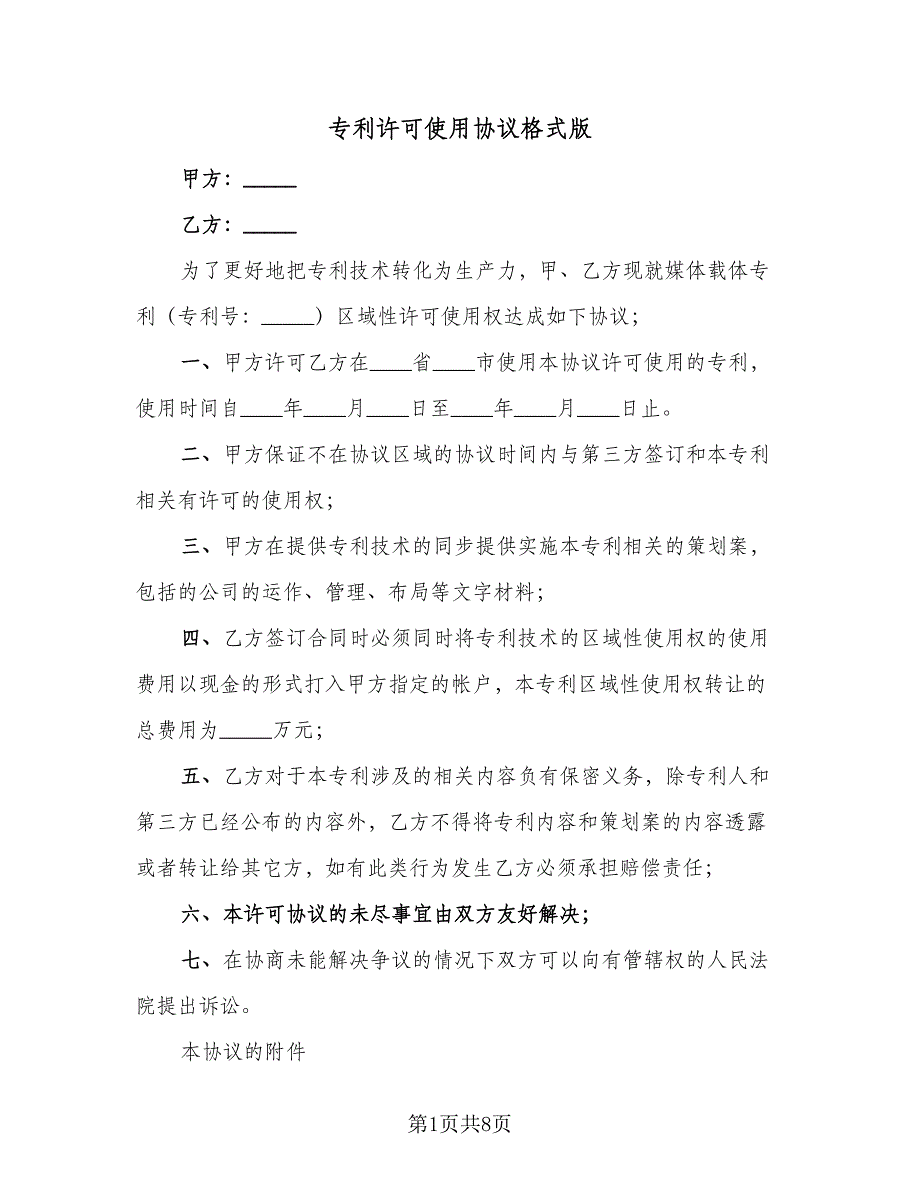 专利许可使用协议格式版
甲方：_____
乙方：_____
为了更好地把专利技术转化为生产力，甲、乙方现就媒体载体专
利（专利号：_____）区域性许可使用权达成如下协议；
一、甲方许可乙方在____省____市使用本协议许可使用的专利，
使用时间自____年____月____日至____年____月____日止。
二、甲方保证不在协议区域的协议时间内与第三方签订和本专利
相关有许可的使用权；
三、甲方在提供专利技术的同步提供实施本专利相关的策划案，
包括的公司的运作、管理、布局等文字材料；
四、乙方签订合同时必须同时将专利技术的区域性使用权的使用
费用以现金的形式打入甲方指定的帐户，本专利区域性使用权转让的
总费用为_____万元；
五、乙方对于本专利涉及的相关内容负有保密义务，除专利人和
第三方已经公布的内容外，乙方不得将专利内容和策划案的内容透露
或者转让给其它方，如有此类行为发生乙方必须承担赔偿责任；
六、本许可协议的未尽事宜由双方友好解决；
七、在协商未能解决争议的情况下双方可以向有管辖权的人民法
院提出诉讼。
本协议的附件
第1页共8页